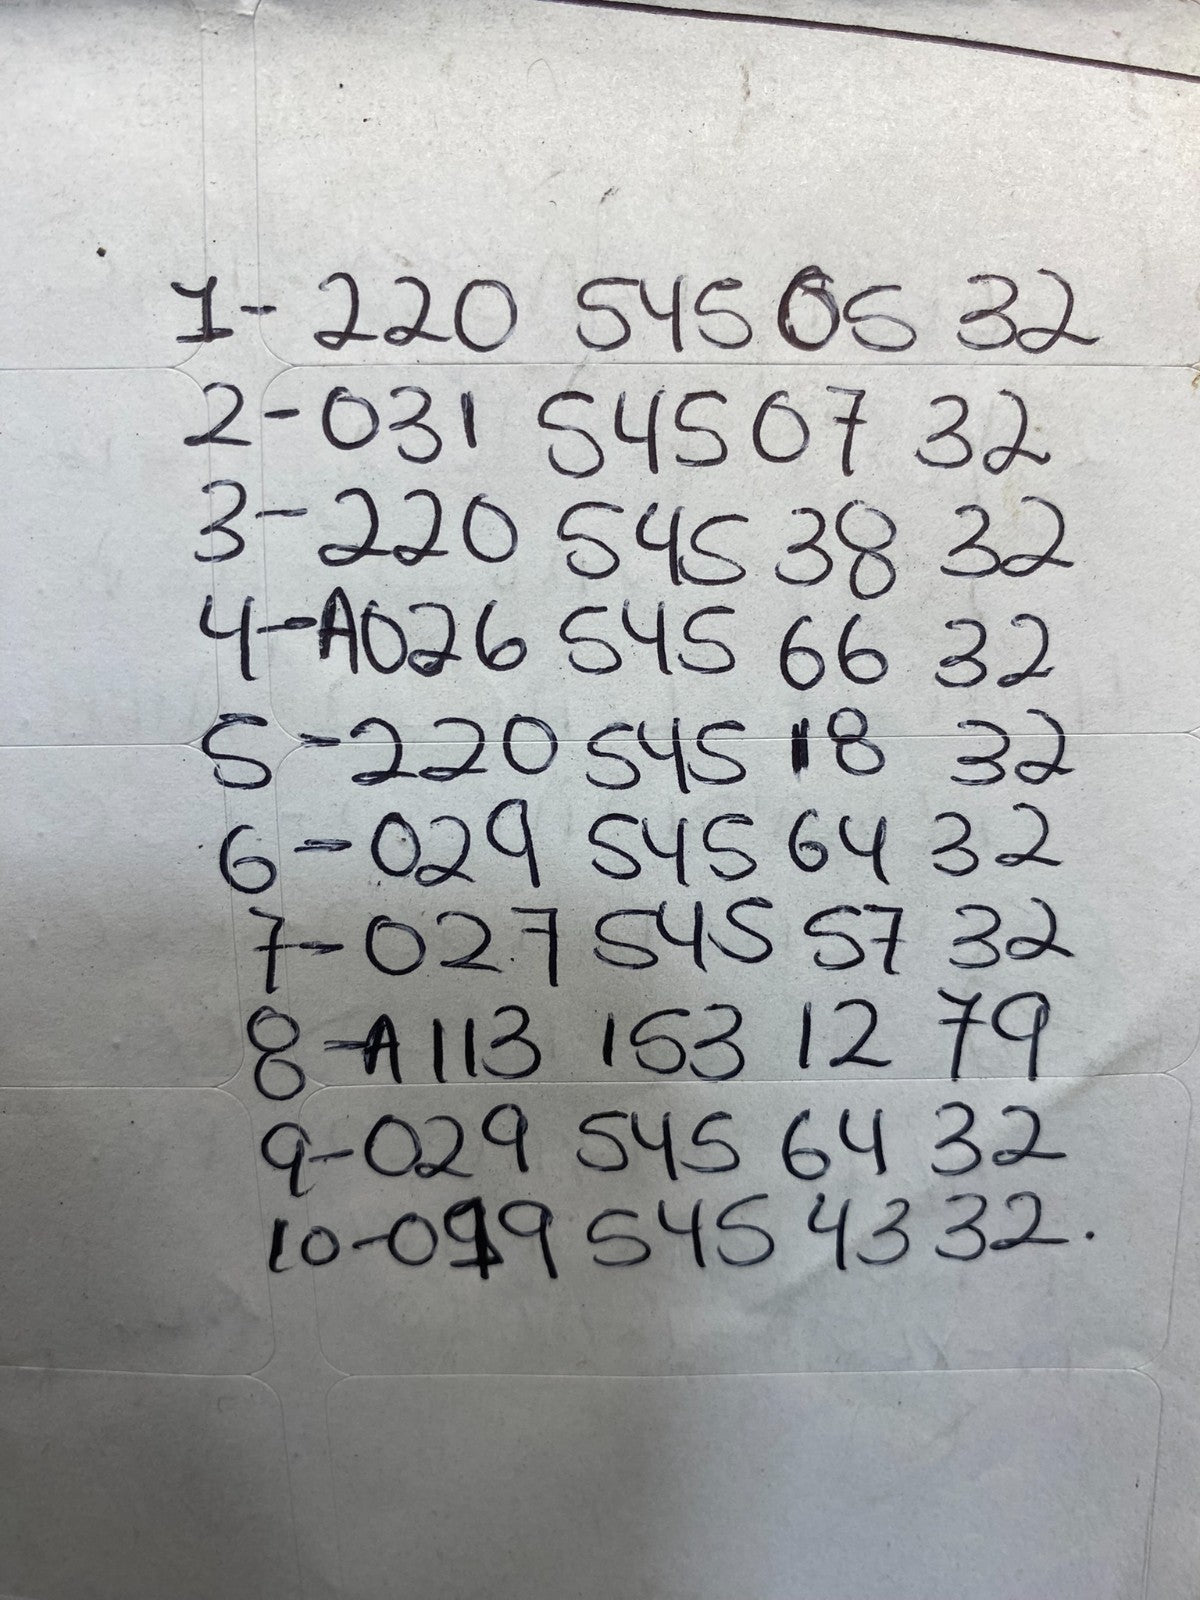 1- 220 545 05 32
2- 031 545 07 32
3- 220 545 38 32
4- A026 545 66 32
5- 220 545 18 32
6- 029 545 64 32
7- 027 545 57 32
8- A113 153 12 79
9- 029 545 64 32
10- 545 43 32.